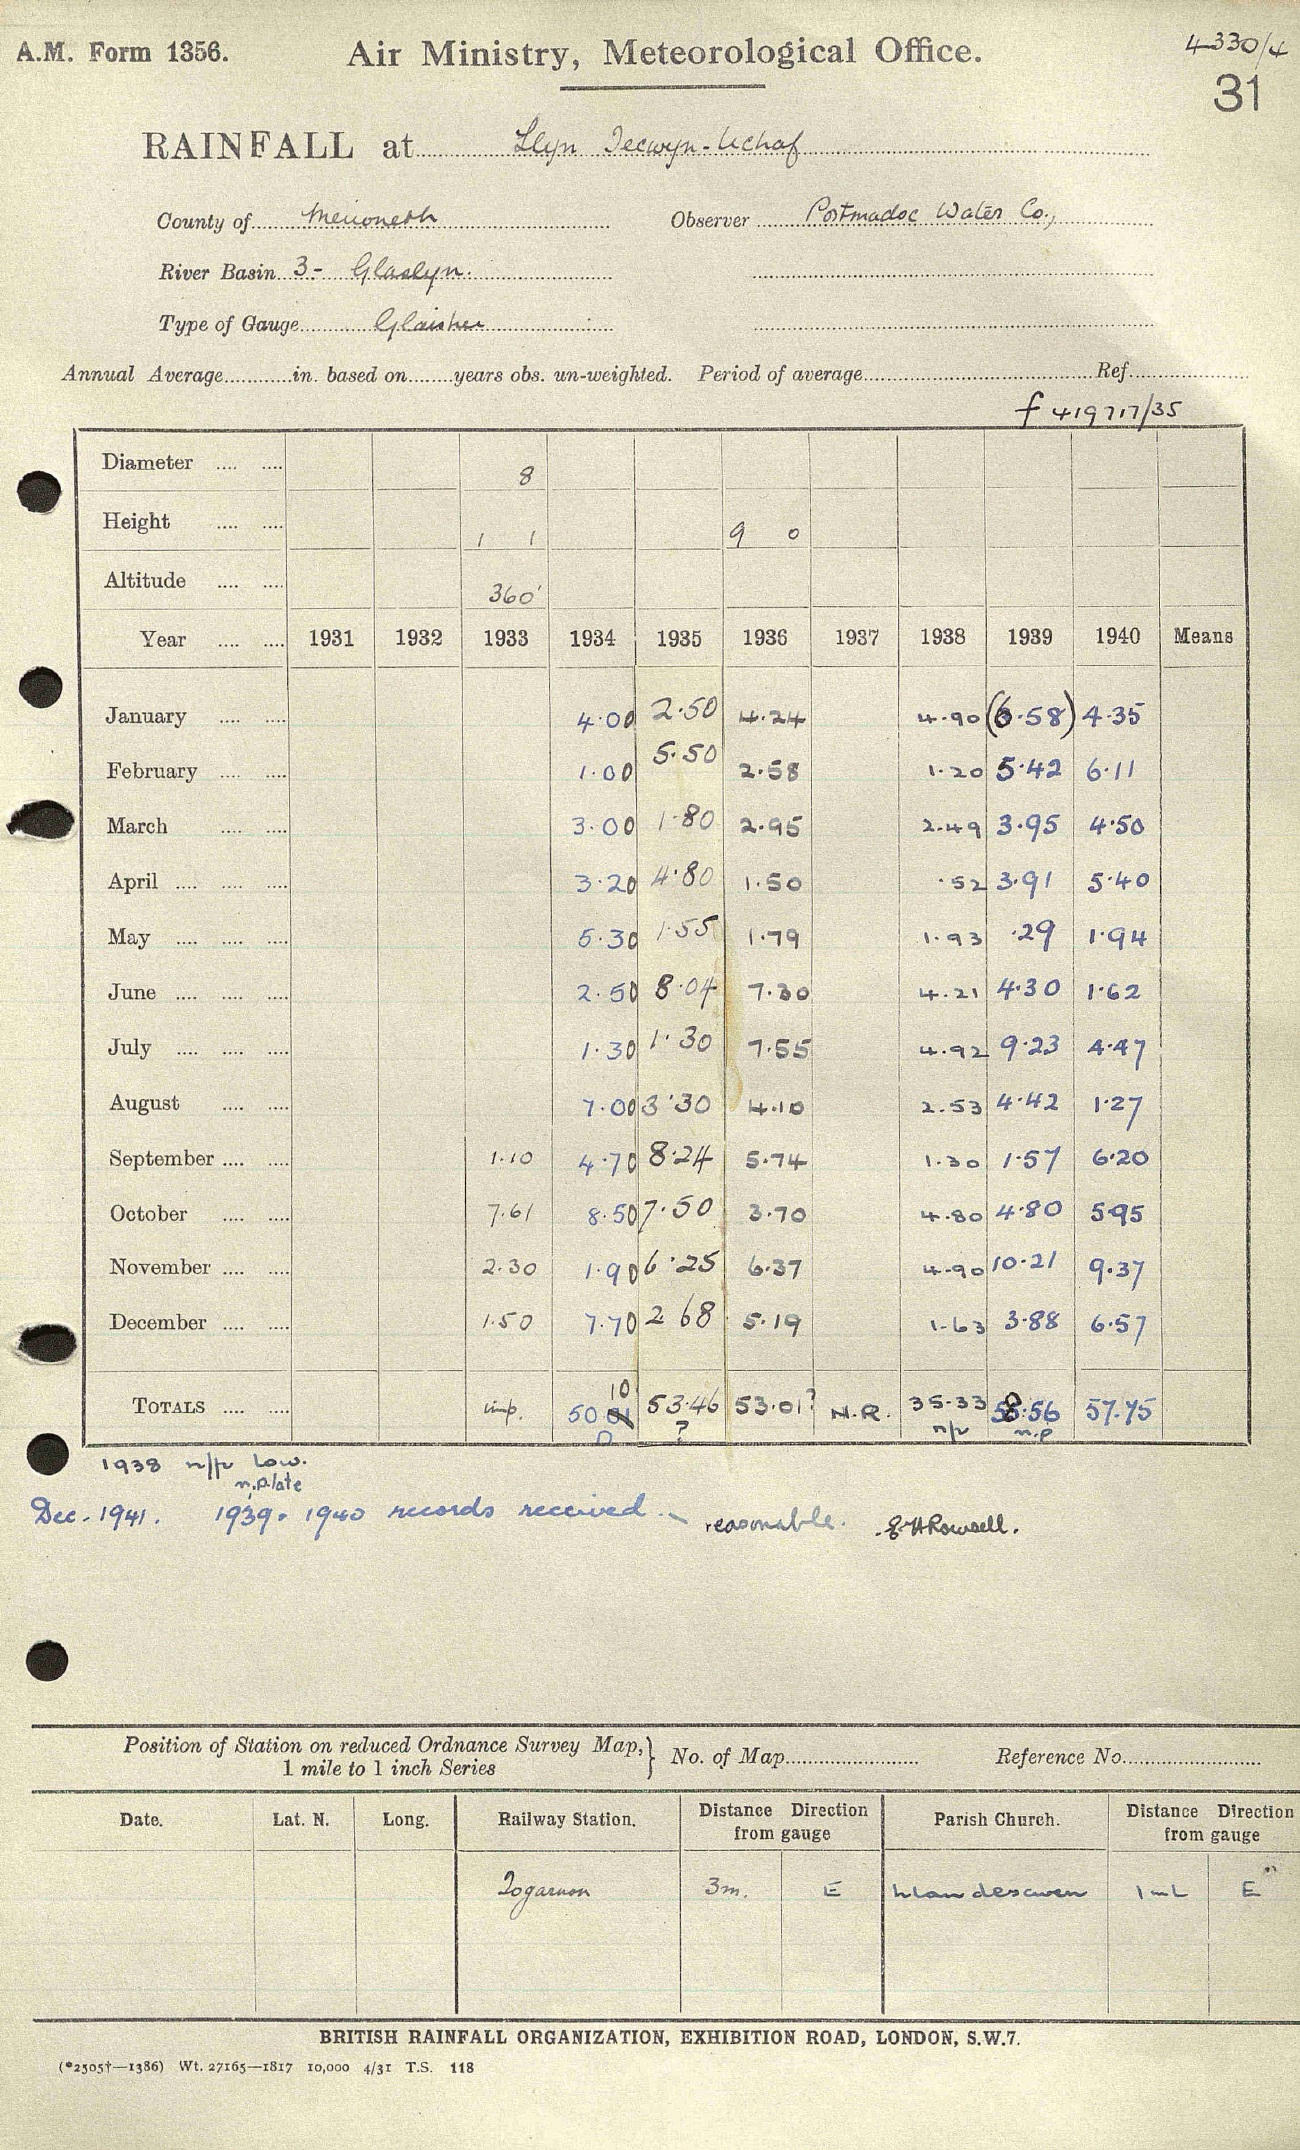 A.M. Form 1356. Air Ministry, Meteorological Office. 4330/4
31
RAINFALL at Llyn Tecwyn-Uchaf
County of Merioneth Observer Portmadoc Water Co.,
River Basin 3- Glaslyn.
Type of Gauge Glaisher
Annual Average............in. based on........years obs. un-weighted. Period of average........Ref........
f 419717/35
Diameter .... .... 8
Height .... .... 1 1 9 0
Altitude .... .... 360'
Year .... .... 1931 1932 1933 1934 1935 1936 1937 1938 1939 1940 Means
January .... .... 4.00 2.50 4.24 4.90 (6.58) 4.35
February .... .... 1.00 5.50 2.58 1.20 5.42 6.11
March .... .... 3.00 1.80 2.95 2.49 3.95 4.50
April .... .... .... 3.20 4.80 1.50 .52 3.91 5.40
May .... .... .... 5.30 1.55 1.79 1.93 .29 1.94
June .... .... .... 2.50 8.04 7.30 4.21 4.30 1.62
July .... .... .... 1.30 1.30 7.55 4.92 9.23 4.47
August .... .... 7.00 3.30 4.10 2.53 4.42 1.27
September .... .... 1.10 4.70 8.24 5.74 1.30 1.57 6.20
October .... .... 7.61 8.50 7.50 3.70 4.80 4.80 5.95
November .... .... 2.30 1.90 6.25 6.37 4.90 10.21 9.37
December .... .... 1.50 7.70 2 68 5.19 1.63 3.88 6.57
10
TOTALS .... .... imp. 50 53.46 53.01? N.R. 35.33 58.56 57.75
? n/p n.p
1938 n/p low.
n.p. late
Dec. 1941. 1939. 1940 records received - reasonable. E.H.Rowsell.
Position of Station on reduced Ordnance Survey Map, } No. of Map........ Reference No........
1 mile to 1 inch Series
Date. Lat. N. Long. Railway Station. Distance Direction from gauge Parish Church. Distance Direction from gauge
3m. E Llandecwen 1 ml E "
BRITISH RAINFALL ORGANIZATION, EXHIBITION ROAD, LONDON, S.W.7.
(*2505†—1386) Wt. 27165—1817 10,000 4/31 T.S. 118